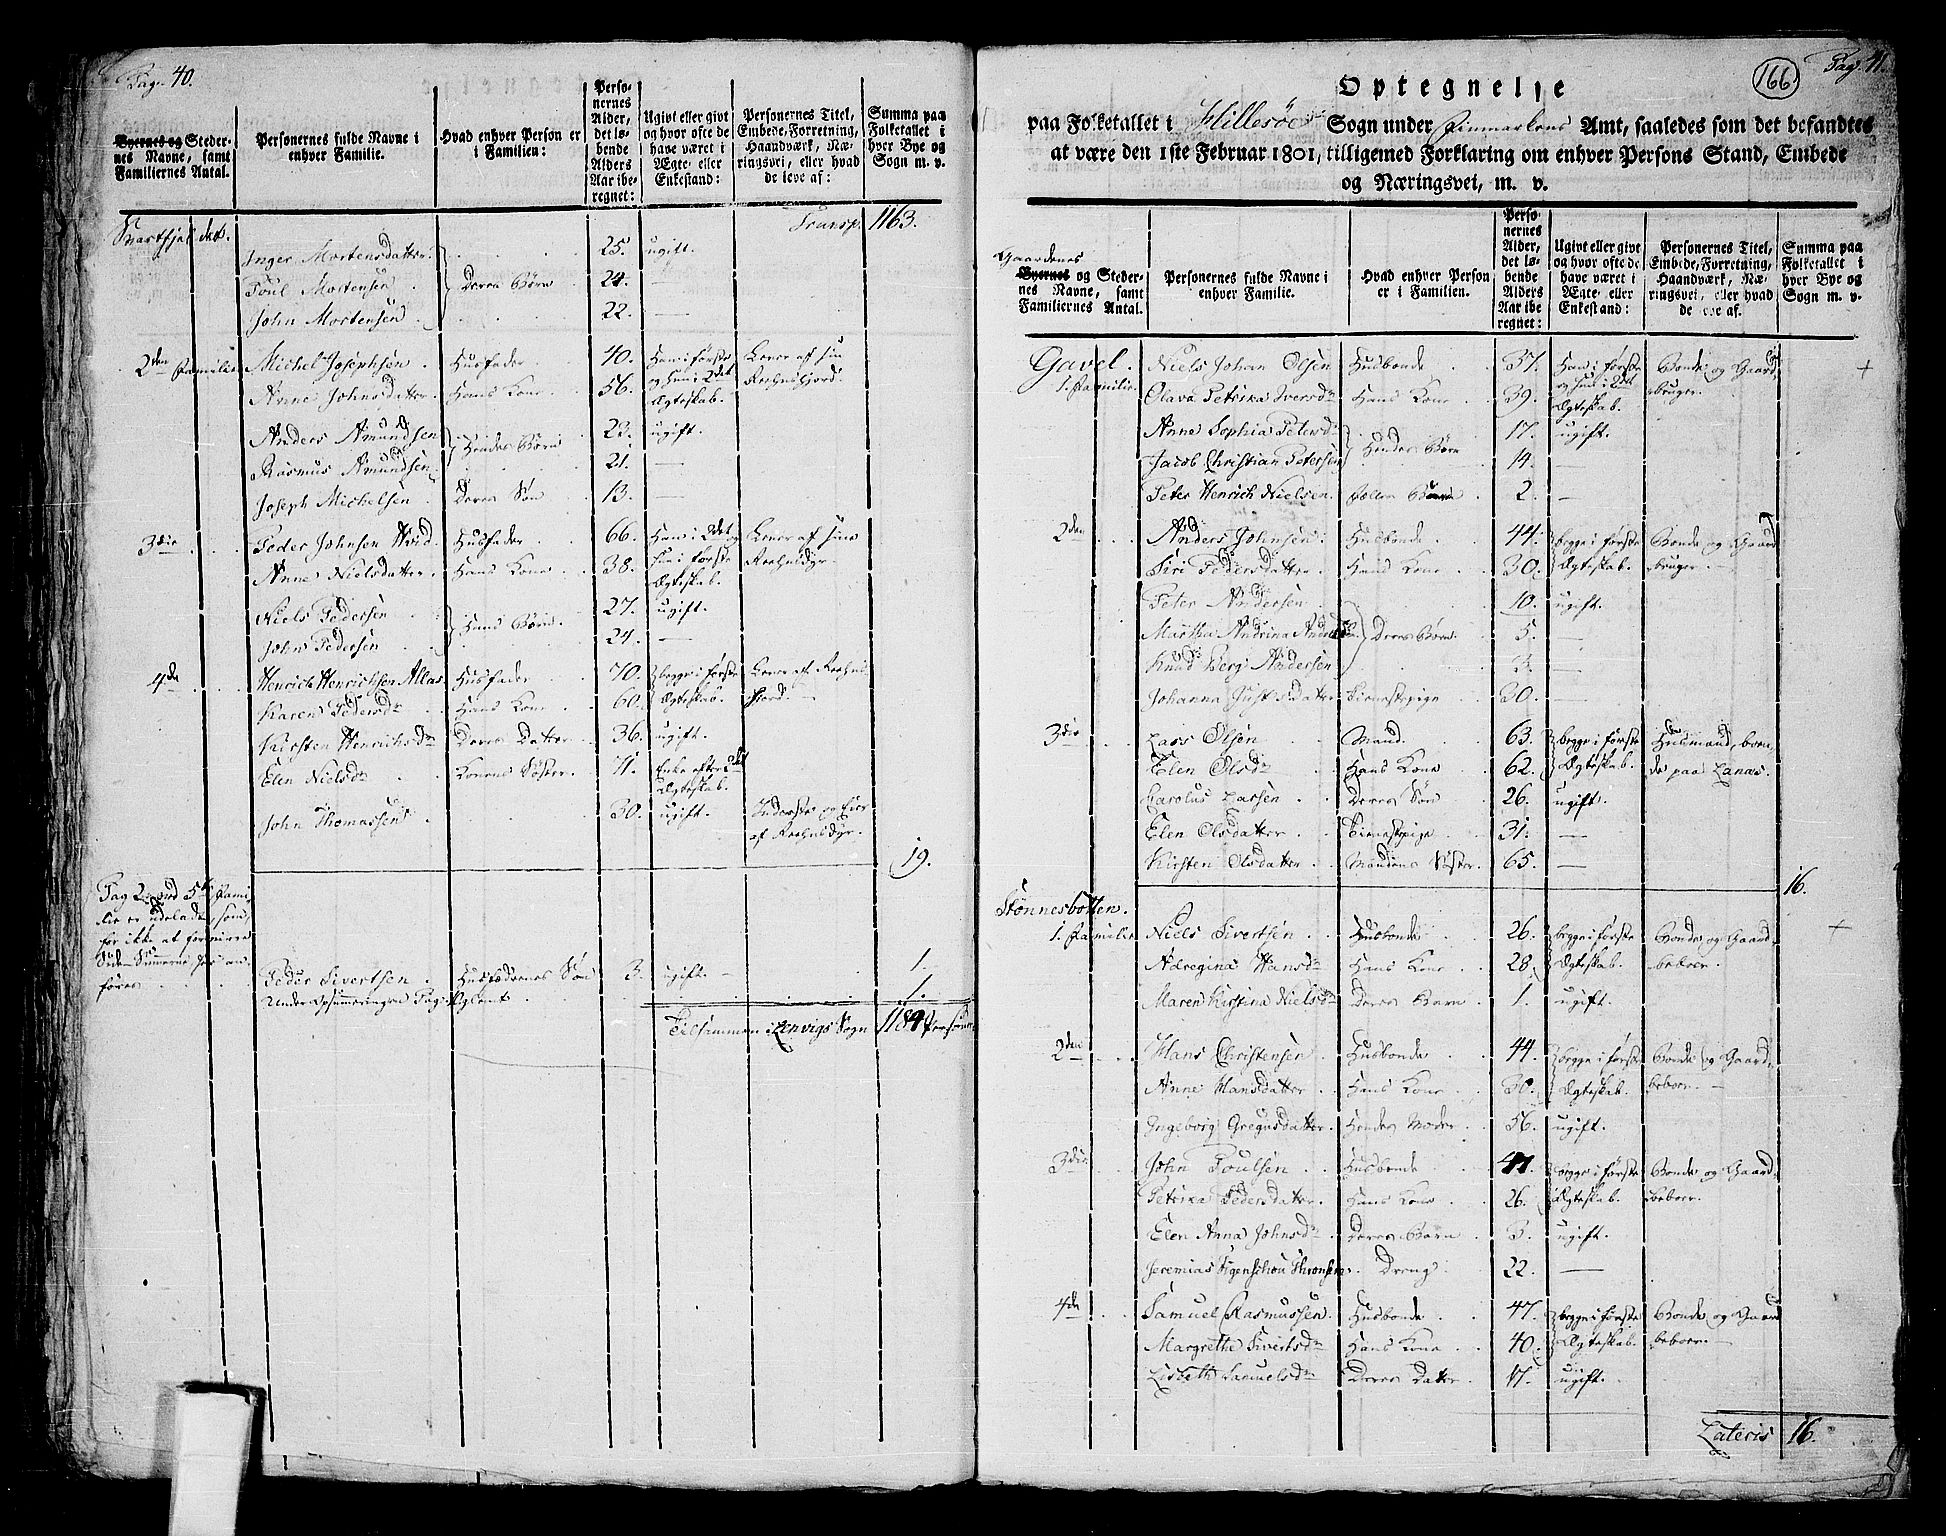 Pag. 40.
Byernes og Steder-
nes Navne, samt
Familiernes Antal.
Personernes fulde Navne i
enhver Familie.
Hvad enhver Person er
i Familien:
Perso-
nernes
Alder,
det lø-
bende
Alders
Aar ibe-
regnet:
Ugivt eller givt
og hvor ofte de
have været i
Ægte- eller
Enkestand:
Personernes Titel,
Embede, Forretning,
Haandværk, Næ-
ringsvei, eller hvad
de leve af:
Summa paa
Folketallet i
hver Bye og
Sogn m. v.
Transp. 1163.
Inger Mortensdatter. 25. ugift.
Poul Mortensen Deres Børn 24. —
John Mortensen 22. —
2den Familie Michel Josephsen Husfader 40. Han i første
Anne Johnsdatter Hans Kone 56. og hun i 2det
Ægteskab.
Anders Amundsen 23. ugift.
Rasmus Amundsen Hendes Børn 21. —
Joseph Michelsen Deres Søn 13. —
3die Peder Johnsen Hvid Husfader 66. Han i 2det og
Anne Nielsdatter Hans Kone 38. hun i første
Ægteskab.
Niels Pedersen 27. ugift.
John Pedersen Hans Børn 24. —
4de Henrich Henrichsen Allas Husfader 70. begge i første
Karen Pedersdr Hans Kone 60. Ægteskab.
Kirsten Henrichsdr Deres Datter 36. ugift.
Elen Nielsdr Konens Søster 71. Enke efter 2det
Ægteskab.
John Thomassen 30. ugift.
19.
Peder Sivertsen 3. ugift — 1.
1.
Tilsammen i Lenvigs Sogn 1184 Personer
166
Pag. 41.
Optegnelse
paa Folketallet i Hillesøe Sogn under Finmarkens Amt, saaledes som det befandtes
at være den 1ste Februar 1801, tilligemed Forklaring om enhver Persons Stand, Embede
og Næringsvei, m. v.
Gaardenes
Byernes og Steder-
nes Navne, samt
Familiernes Antal.
Personernes fulde Navne i
enhver Familie.
Hvad enhver Person
er i Familien.
Perso-
nernes
Alder,
det lø-
bende
Alders
Aar ibe-
regnet:
Ugivt eller givt
og hvor ofte de
have været i
Ægte- eller
Enkestand:
Personernes Titel,
Embede, Forretning,
Haandværk, Næ-
ringsvei, eller hvad
de leve af.
Summa paa
Folketallet i
hver Bye og
Sogn m. v.
Gavel. Niels Johan Olsen Husbonde 37. Han i første Bonde og Gaard- +
1. Familie Olava Petrika Iversdr Hans Kone 39. og hun i 2det bruger.
Ægteskab.
Anne Sophia Petersdr 17. ugift.
Jacob Christian Petersen Hendes Børn 14. —
Peter Henrich Nielsen 2. —
2den Anders Johnsen Husbonde 44. begge i første Bonde og Gaard-
Siri Pedersdatter Hans Kone 30. Ægteskab. bruger. —
Peter Andersen 10. ugift.
Martha Andrina Andersdr Deres Børn. 5. —
Knud Berg Andersen 3. —
Johanna Justsdatter Tienestepige 20. —
3die Lars Olsen Mand. 63. begge i første Husmand, boen-
Elen Olsdr Hans Kone 62. Ægteskab. de paa Lanæs.
Karolus Larsen Deres Søn 26. ugift.
Elen Olsdatter Tienestepige 31. —
Kirsten Olsdatter Mandens Søster 65. —
16.
Stønnesbotten.
1. Familie Niels Sivertsen Husbonde 26. begge i første Bonde og Gaard- +
Adregina Hansdr Hans Kone 28. Ægteskab. beboer.
Maren Kirstina Nielsdr Deres Barn 1. ugift.
2den Hans Christensen Husbonde 44. begge i første Bonde og Gaard-
Anne Hansdatter Hans Kone 30. Ægteskab. beboer. —
Ingeborg Gregusdatter Hendes Moder 56. ugift.
3die John Poulsen Husbonde 47. begge i første Bonde og Gaard-
Petrika Pedersdatter Hans Kone 26. Ægteskab. beboer.
Elen Anna Johnsdr Deres Barn 3. ugift.
Jeremias Dreng 22. —
4de Samuel Rasmussen Husbonde 47. begge i første Bonde og Gaard-
Margrethe Sivertsdr Hans Kone 40. Ægteskab. beboer.
Lisbeth Samuelsdr Deres Datter 17. ugift.
Lateris 16.